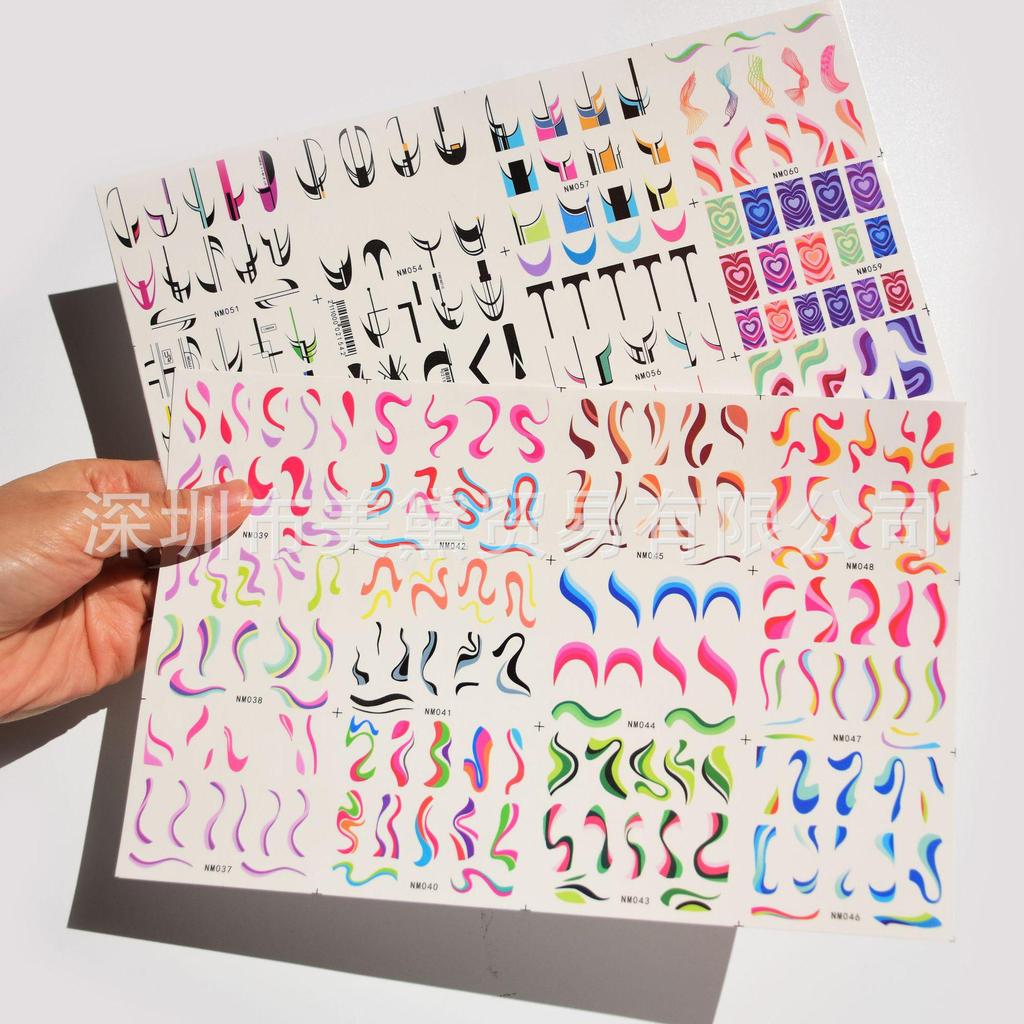 NM060
NM057
NM059
NM054
NM051
2111000021542
NM056
深圳市美黛贸易有限公司
NM039
NM042
NM045
NM048
NM038
NM041
NM044
NM047
NM037
NM040
NM043
NM046